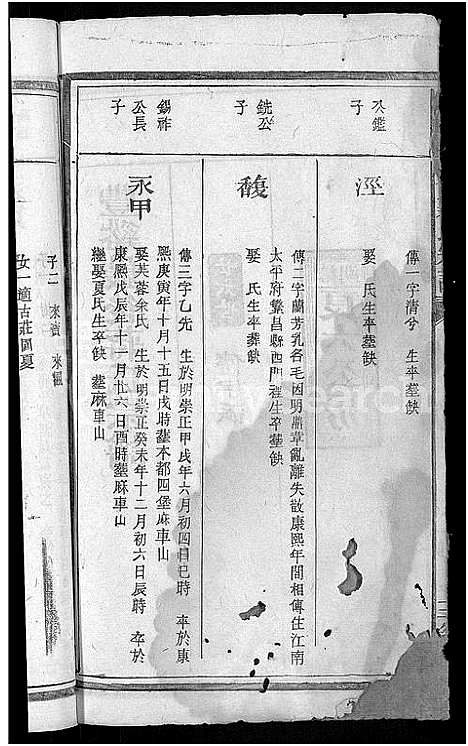 公鑑
子
涇
傳一字清兮 生卒塟缺
娶 氏生卒塟缺
銑公
子
馥
傳二字蘭芳乳名毛因明鼎革亂離失散康熙年間相傳住江南
太平府繁昌縣西門裡生卒塟缺
娶 氏生卒葬缺
錫祚
公長
子
永甲
傳三字乙先 生於明崇正甲戌年六月初四日巳時 卒於康
熙庚寅年十月十五日戌時塟本都四堡麻車山
娶芙蓉余氏 生於明崇正癸未年十二月初六日辰時 卒於
康熙戊辰年十一月廿六日酉時塟麻車山
繼娶夏氏生卒缺 塟麻車山
子二 來賓 來
女一適古莊圓夏